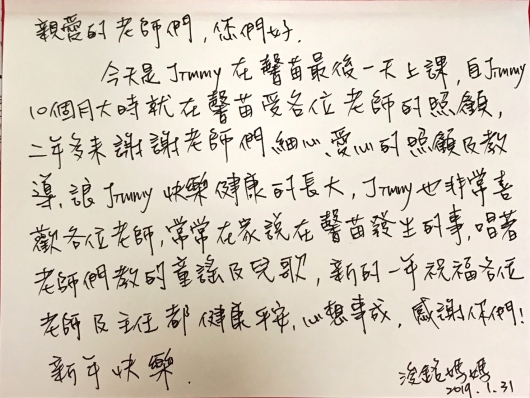 親愛的老師們,你們好.
今天是Jimmy在馨苗最後一天上課,自Jimmy
10個月大時就在馨苗受各位老師的照顧,
二年多來謝謝老師們細心、愛心的照顧及教
導,讓Jimmy快樂健康的長大,Jimmy也非常喜
歡各位老師,常常在家說在馨苗發生的事,唱著
老師們教的童謠及兒歌,新的一年祝福各位
老師及主任都健康平安,心想事成,感謝你們!
新年快樂.
浚銘媽媽
2019.1.31